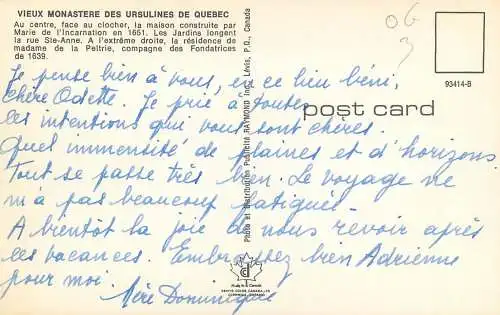 VIEUX MONASTERE DES URSULINES DE QUEBEC
Au centre, face au clocher, la maison construite par
Marie de l'Incarnation en 1651. Les Jardins longent
la rue Ste-Anne. A l'extrême droite, la résidence de
madame de la Peltrie, compagne des Fondatrices
de 1639.
06
3
93414-B
post card
Photo et distribution Publicité RAYMOND Inc., Lévis, P.Q., Canada
Je pense bien à vous, en ce lieu béni,
chère Odette. Je prie à toutes
les intentions qui vous sont chères.
Quel immensité de plaines et d'horizons.
Tout se passe très bien. Le voyage ne
m'a pas beaucoup fatiguée.
A bientôt la joie de nous revoir après
les vacances. Embrassez bien Adrienne
pour moi.
Mère Dominique